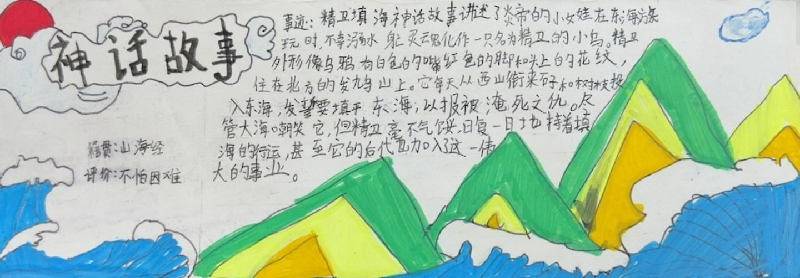 神话故事
事迹：精卫填海神话故事讲述了炎帝的小女娃在东海游
玩时不幸溺水身灵魂化作一只名为精卫的小鸟。精卫
外形像乌鸦有白色的嘴红色的脚和头上的花纹，
住在北方的发鸠山上。它每天从西山衔来石子和树枝投
入东海，发誓要填平东海，以报被淹死之仇。尽
管大海嘲笑它，但精卫毫不气馁，日复一日地持着填
海的行运，甚至它的后代也加入了这一伟
大的事业。
籍贯：山海经
评价：不怕困难